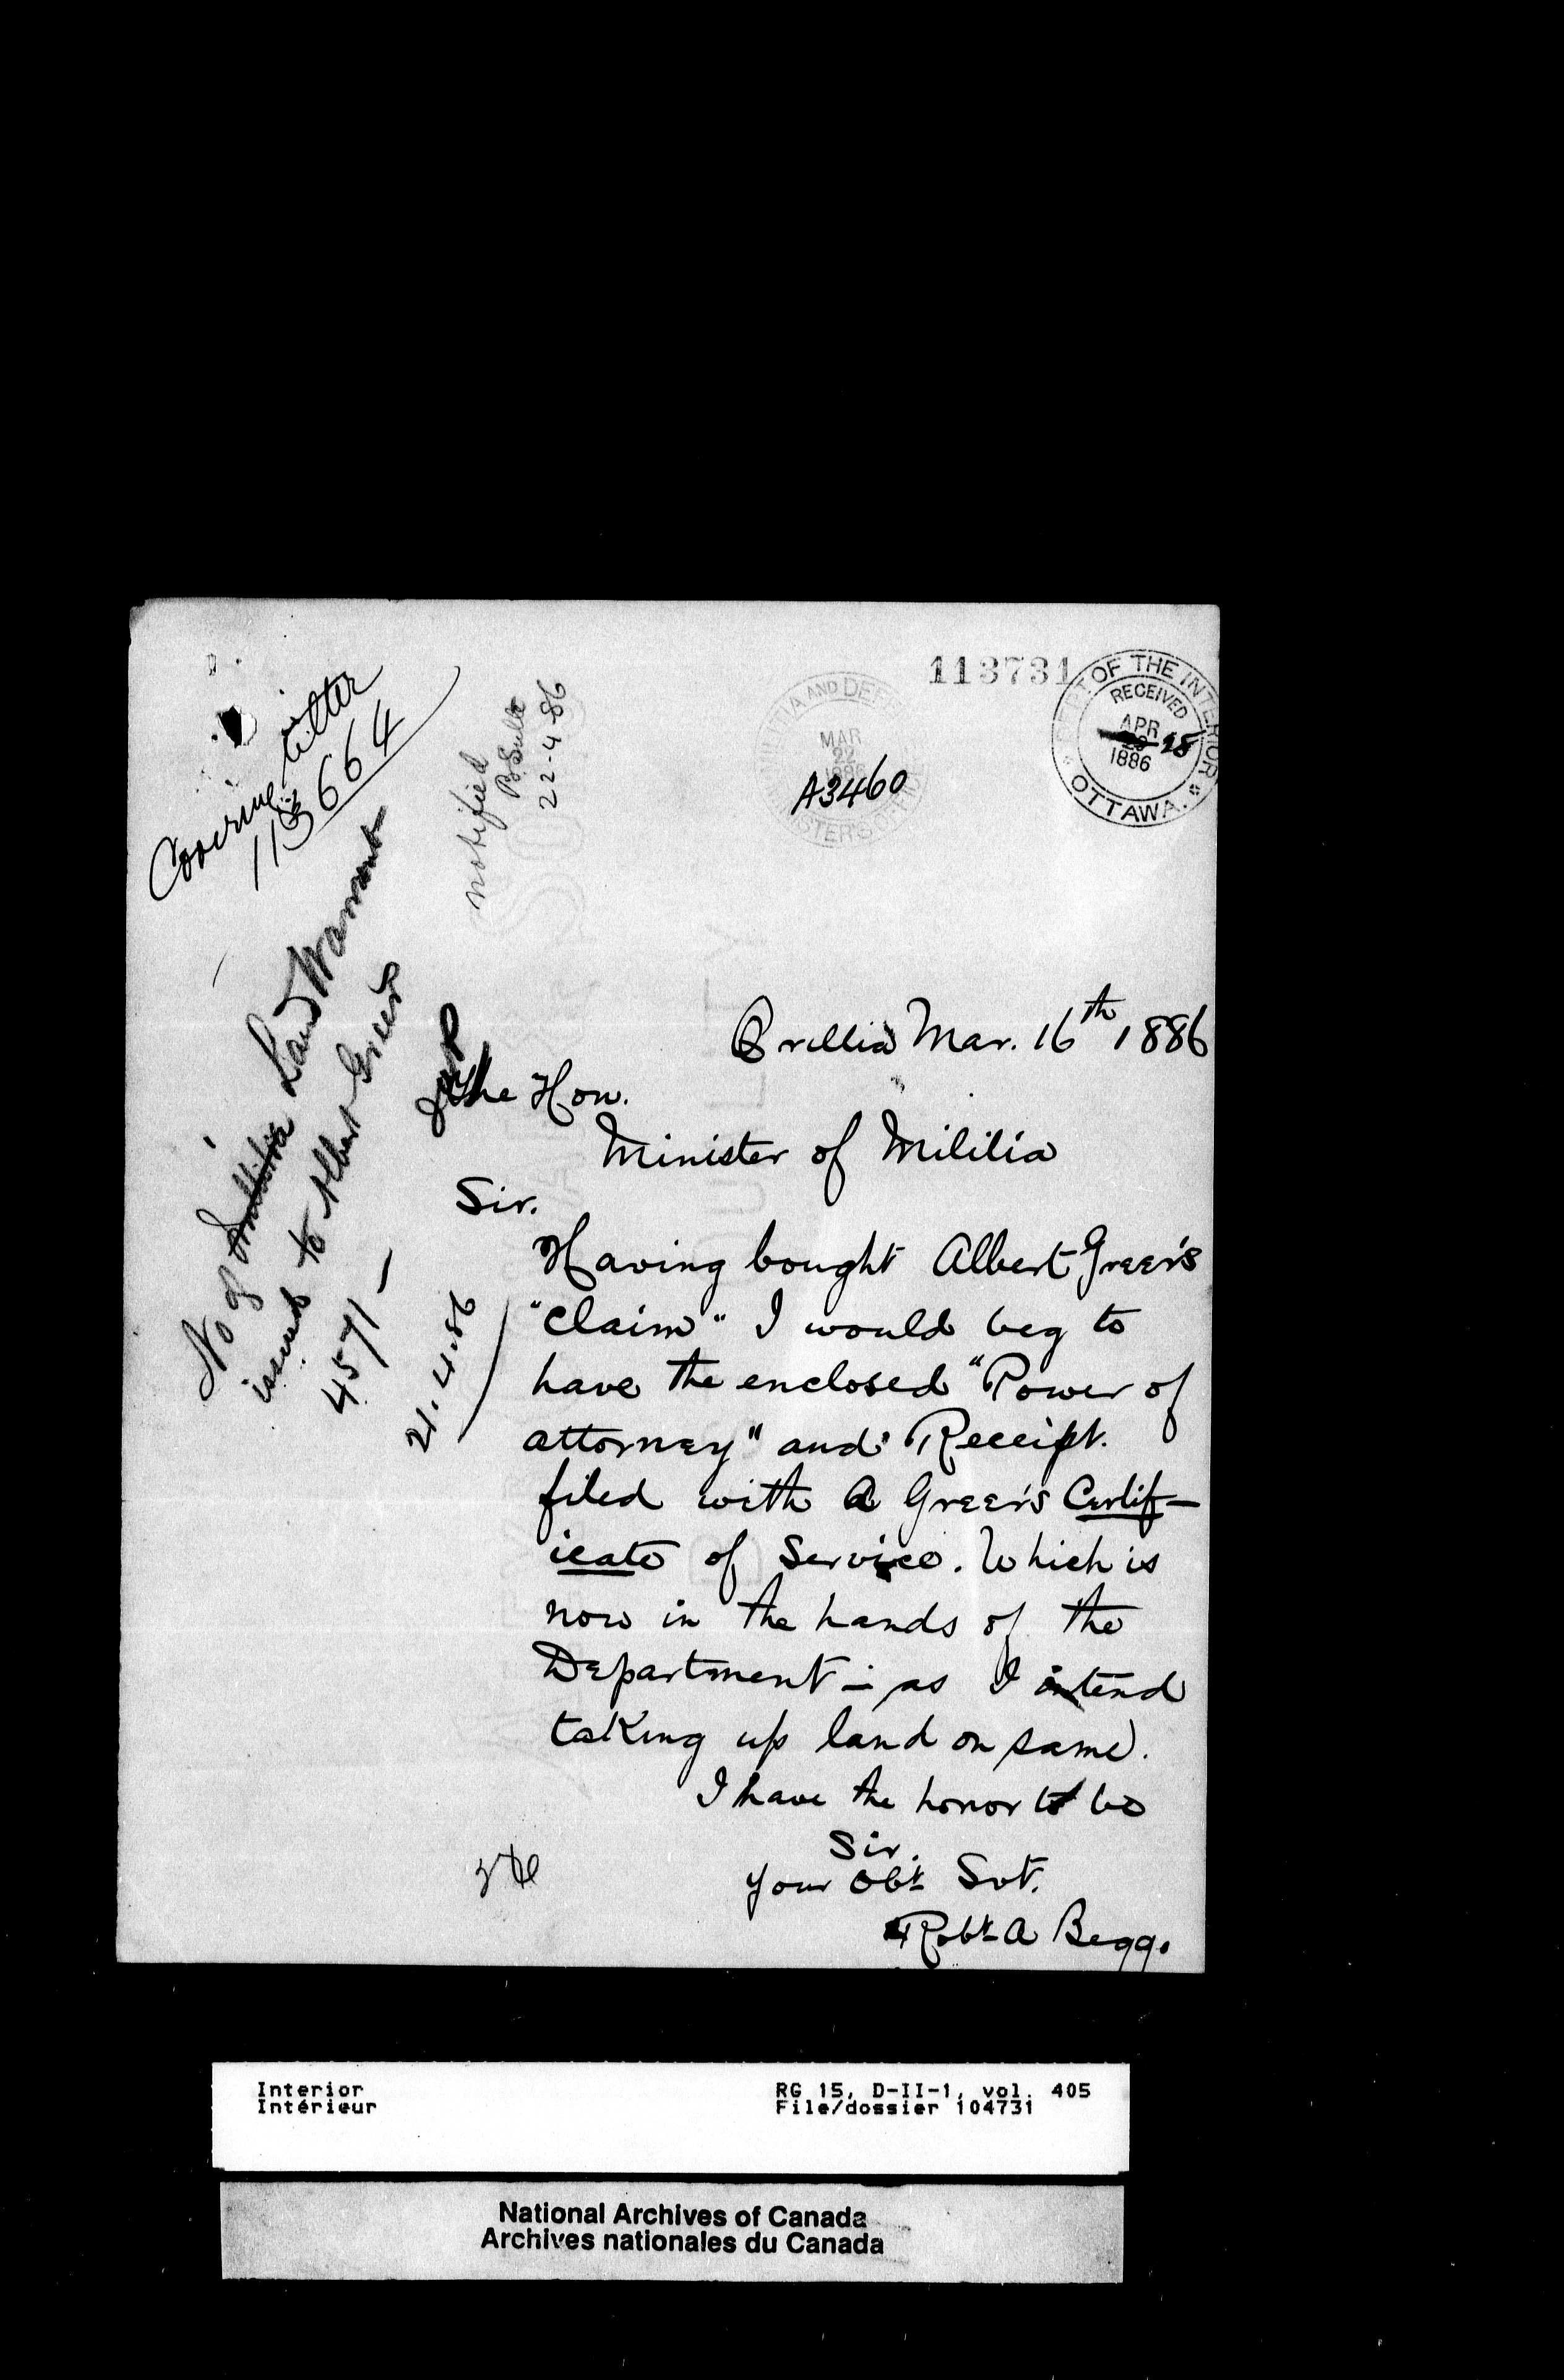 113731
DEPT OF THE INTERIOR
RECEIVED
APR
28
1886
OTTAWA.
MILITIA AND DEFE
MAR
22
1886
MINISTER'S OFFICE
A3460
Covering letter
113664
notified
B Sulte
22-4-86
No of Militia Land Warrant
issued to Albert Greer
4571 -
21.4.86
Orillia Mar. 16th 1886
The Hon.
Minister of Militia
Sir.
Having bought Albert Greer's
"claim" I would beg to
have the enclosed "Power of
attorney" and Receipt.
filed with A Greer's Certif-
icate of Service. Which is
now in the hands of the
Department - as I intend
taking up land on same.
I have the honor to be
Sir.
Your Obt Svt.
Robt A Begg.
Interior
Intérieur
RG 15, D-II-1, vol. 405
File/dossier 104731
National Archives of Canada
Archives nationales du Canada